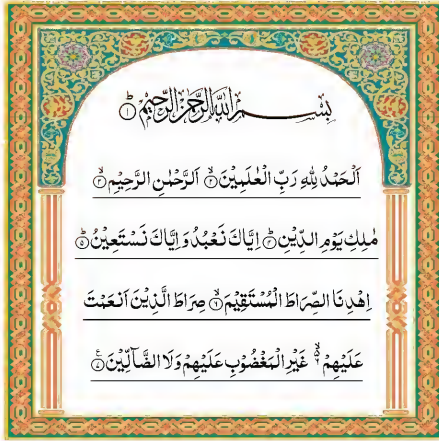 بِسْمِ اللّٰهِ الرَّحْمٰنِ الرَّحِيْمِ ؕ ۝۱
اَلْحَمْدُ لِلّٰهِ رَبِّ الْعٰلَمِيْنَ ۙ ۝۲ اَلرَّحْمٰنِ الرَّحِيْمِ ۙ ۝۳
مٰلِكِ يَوْمِ الدِّيْنِ ؕ ۝۴ اِيَّاكَ نَعْبُدُ وَ اِيَّاكَ نَسْتَعِيْنُ ؕ ۝۵
اِهْدِنَا الصِّرَاطَ الْمُسْتَقِيْمَ ۙ ۝۶ صِرَاطَ الَّذِيْنَ اَنْعَمْتَ
عَلَيْهِمْ ۙ۬ ۶ غَيْرِ الْمَغْضُوْبِ عَلَيْهِمْ وَلَا الضَّآلِّيْنَ ۠ ۝۷